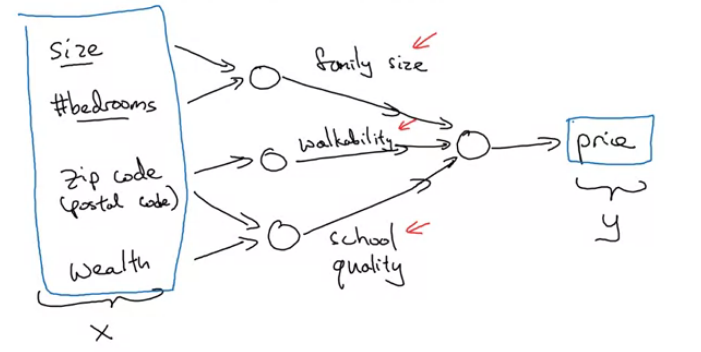 size
#bedrooms
zip code
(postal code)
wealth
X
family size
walkability
school
quality
price
y